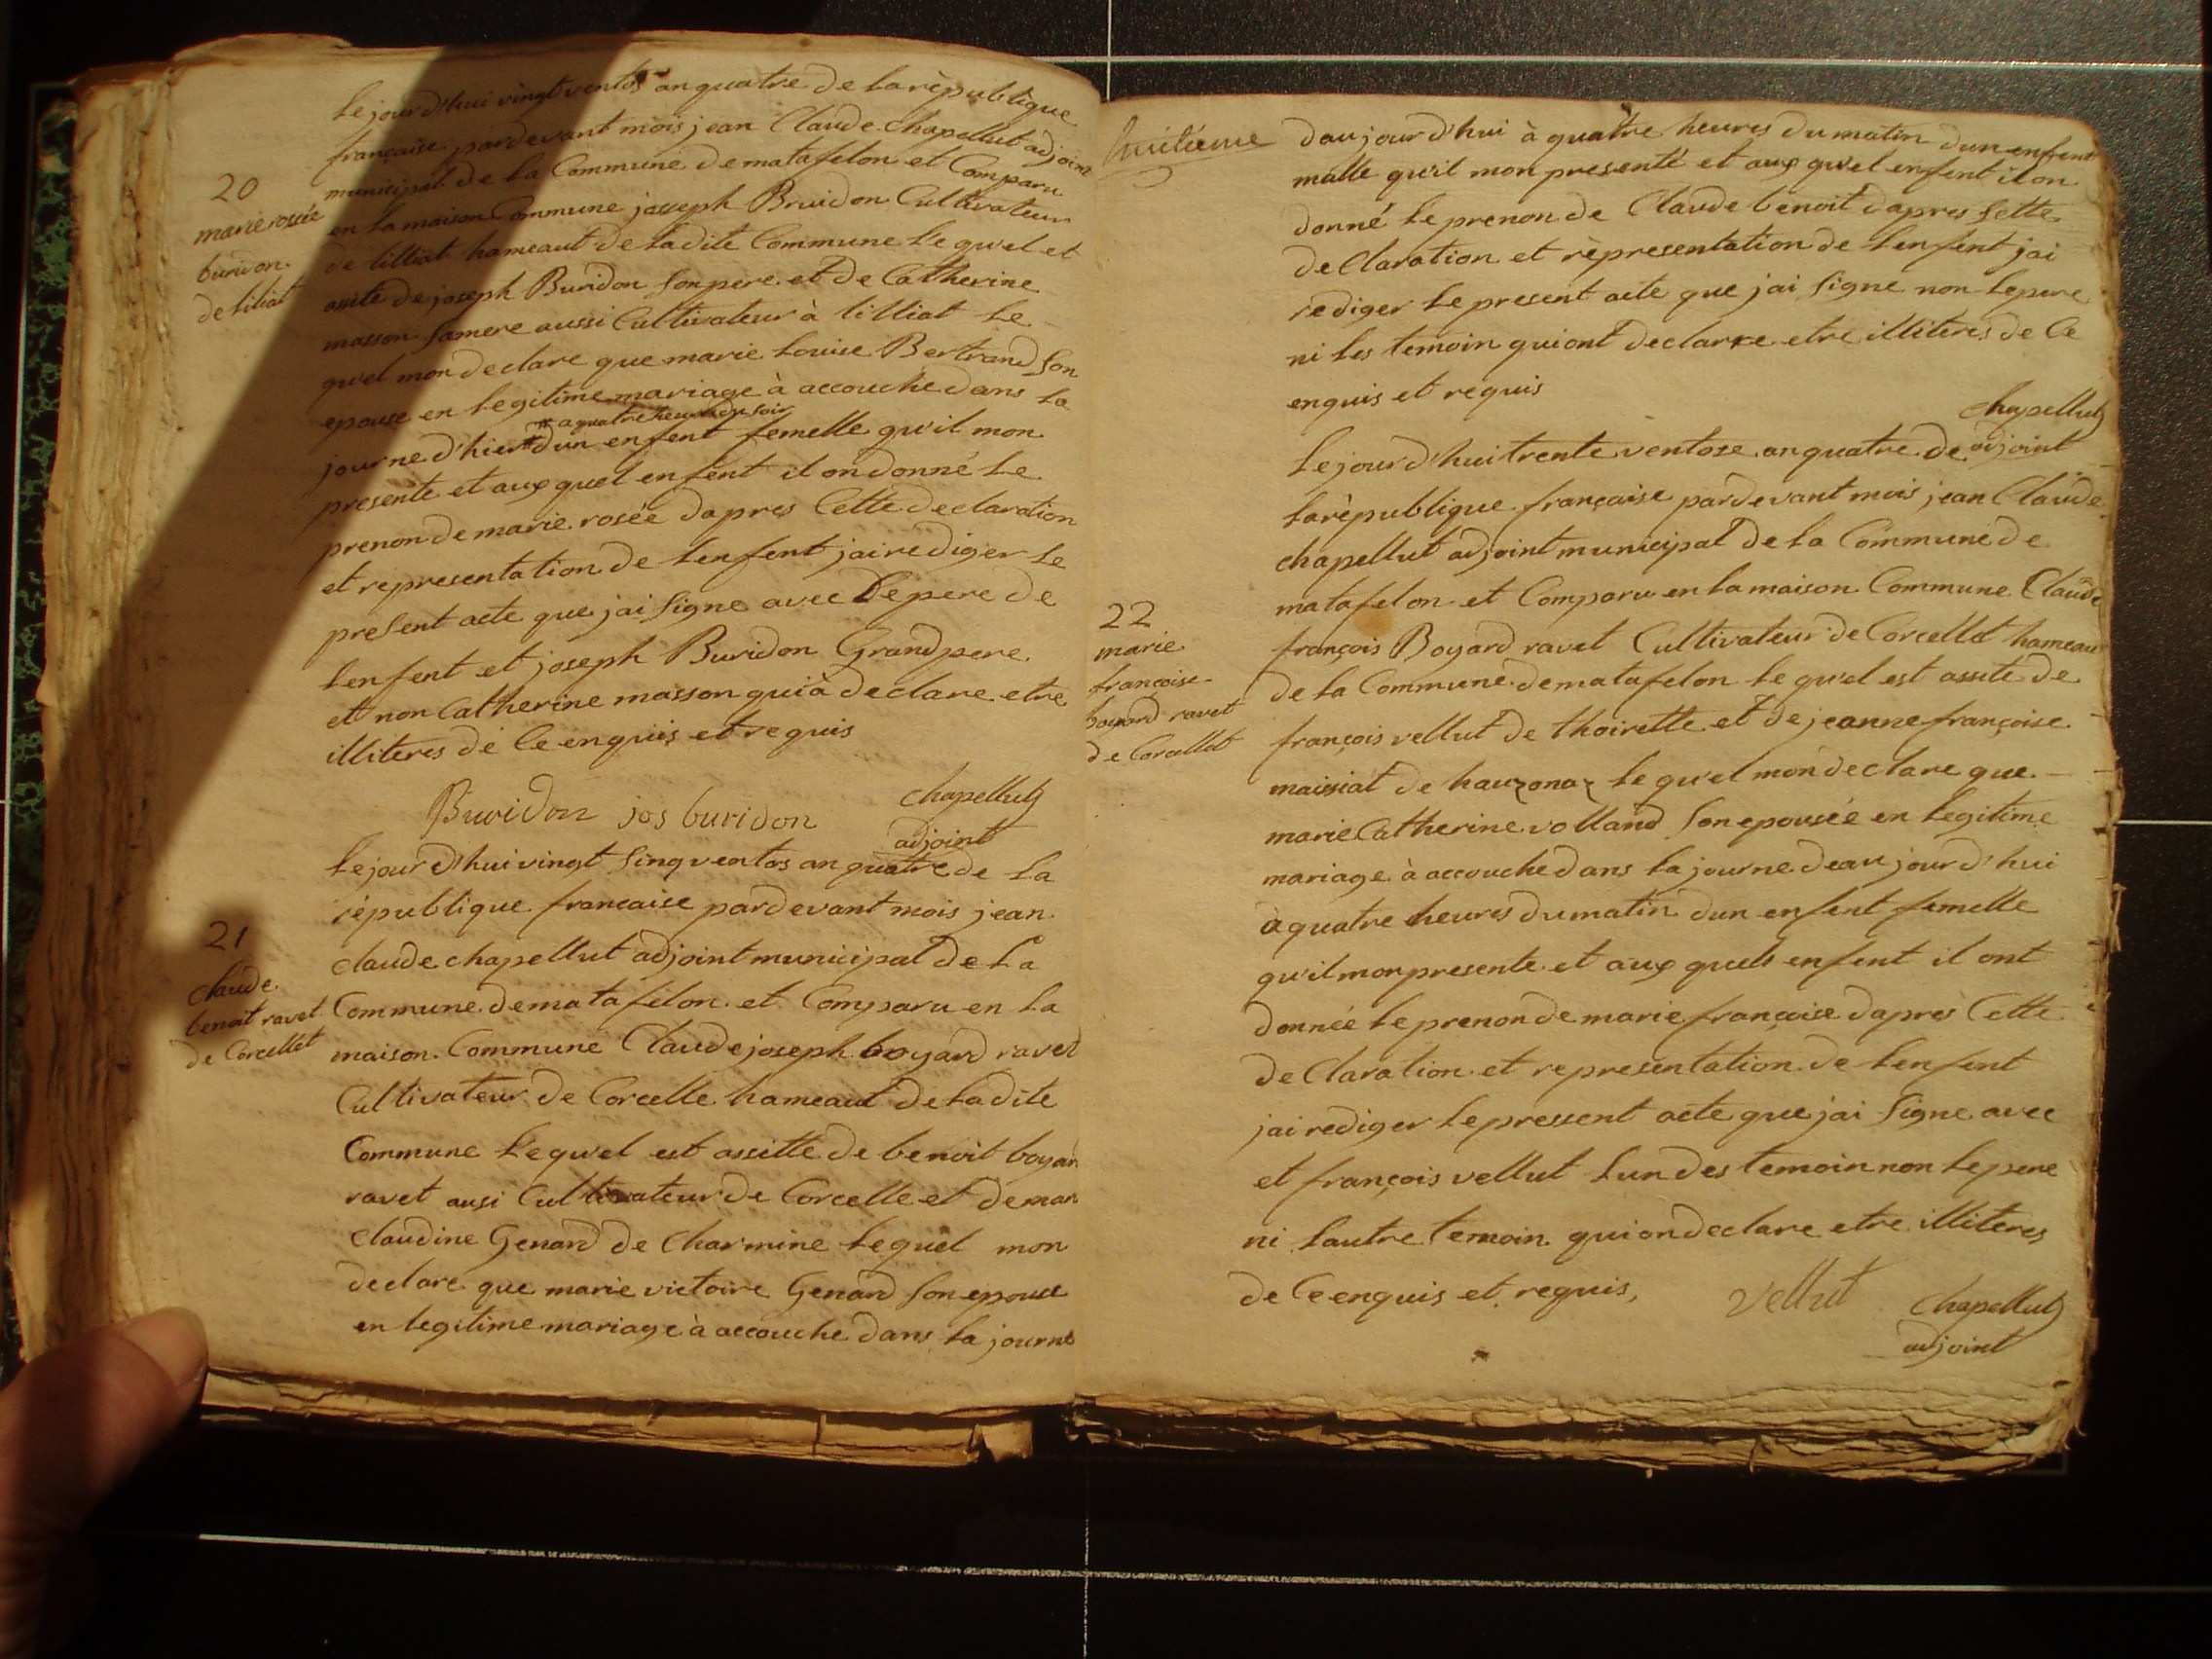 le jour d'hui vingt ventos an quatre de la rèpublique
française pardevant mois jean Claude chapellut adjoint
municipal de la Commune de matafelon et Comparu
en la maison Commune josseph Bruidon Cultivateur
de lilliat hameaut de ladite Commune le qu'el et
assite de joseph Buridon son pere et de Catherine
masson samere aussi Cultivateur à lilliat le
qu'el mon declare que marie louise Bertrand son
epouse en legitime mariage à accouche dans la
# a quatre heures du soir
journe d'hier # dun enfent femelle qu'il mon
presente et aux quel enfent il on donné le
prenon de marie rosée dapres Cette declaration
et representation de lenfent jai rediger le
present acte que jai signe avec le pere de
lenfent et joseph Buridon Grand pere
et non Catherine masson qui à declare etre
illiteres de Ce enquis et requis
Buridon jos buridon chapellut
adjoint
20
marie rosée
buridon
de liliat
le jour d'hui vingt sinq ventos an quatre de la
rèpublique francaise pardevant mois jean
claude chapellut adjoint municipal de la
Commune de matafelon et Comparu en la
maison Commune Claude joseph boyard ravet
Cultivateur de Corcelle hameaut de ladite
Commune le qu'el est assitte de benoit boyar
ravet ausi Cultivateur de Corcelle et de mar
Claudine Genard de Charmine le quel mon
declare que marie victoire Genard son epouse
en legitime mariage à accouche dans la journe
21
claude
benoit ravet
de Corcellet
huitieme
daujourd'hui à quatre heures du matin dun enfent
malle qu'il mon presenté et aux qu'el enfent il on
donné le prenon de Claude benoit dapres sette
declaration et rèpresentation de lenfent jai
rediger le present acte que jai signe non le pere
ni les temoin qui ont declarre etre illiteres de Ce
enquis et requis
chapellut
adjoint
le jour d'hui trente ventose an quatre de
la rèpublique française pardevant mois jean Claude
chapellut adjoint municipal de la Commune de
matafelon et Comparu en la maison Commune Claude
françois Boyard ravet Cultivateur de Corcellet hameau
de la Commune de matafelon le qu'el est assite de
françois vellut de thoirette et de jeanne françoise
maissiat de hauzonaz le qu'el mon declare que
marie Catherine volland son epousée en legitime
mariage à accouche dans la journe deaujourd'hui
à quatre heures du matin dun enfent femelle
qu'il mon presente et aux quels enfent il ont
donnée le prenon de marie françoise daprès Cette
declaration et representation de lenfent
jai rediger le pressent acte que jai signe avec
et françois vellut lun des temoin non le pere
ni lautre temoin qui on declare etre illiteres
de Ce enquis et requis, vellut chapellut
adjoint
22
marie
françoise
boyard ravet
de Corcellet